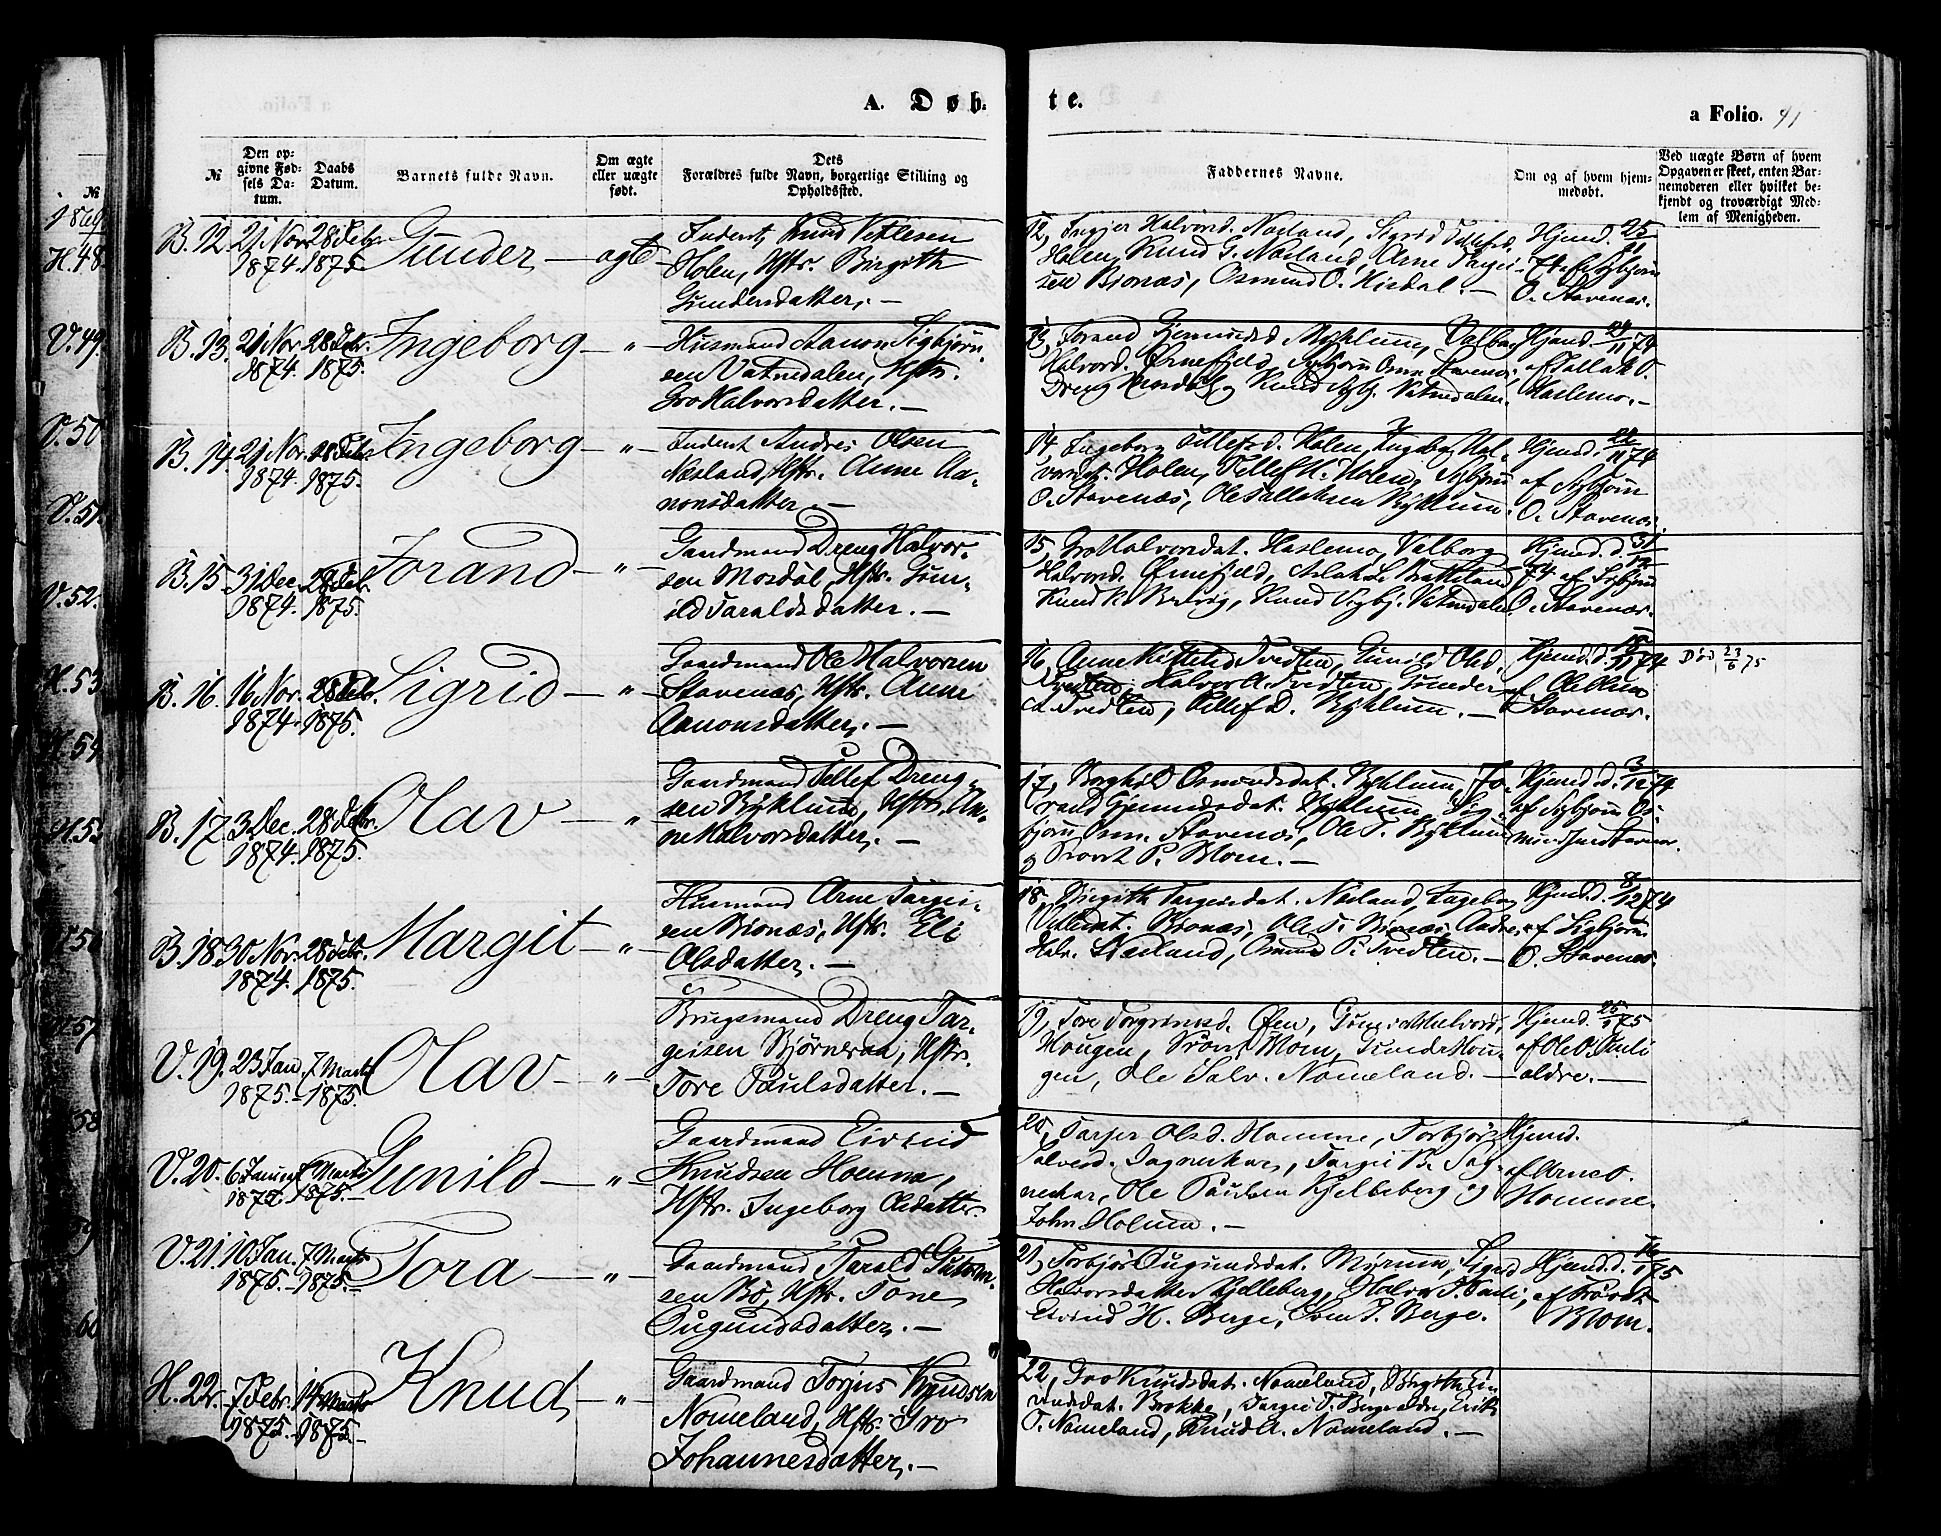 A. Døb-
te.
a Folio. 41
№
Den op-
givne Fød-
sels Da-
tum.
Daabs
Datum.
Barnets fulde Navn.
Om ægte
eller uægte
født.
Dets
Forældres fulde Navn, borgerlige Stilling og
Opholdssted.
Faddernes Navne.
Om og af hvem hjem-
medøbt.
Ved uægte Børn af hvem
Opgaven er skeet, enten Bar-
nemoderen eller hvilket be-
kjendt og troværdigt Med-
lem af Menigheden.
B. 12. 21 Nov. 1874. 28 Febr. 1875. Gunder — ægte —
Inderst, Knud Vetlesen
Holen, Hstr. Birgith
Gundersdatter. —
12, Halvorsd. Næsland, Sigrid
Holen, Knud G. Næsland, Arne Targei-
sen Bjonæs, Osmund O.
Hjemd. 25/11
74 af Sigbjørn
O. Stavenæs.
B. 13. 21 Nov. 1874. 28 Febr. 1875. Ingeborg — „ —
Husmand Aanon Sigbjørn-
sen Vatnedalen, Hstr.
Gro Halvorsdatter. —
13, Torand Gjermundsd. Byklum, Valborg
Halvorsd. Ørnefjeld, Sigbjørn Osm. Stavenæs,
Dreng Mosdøl og Knud Sigbj. Vatnedalen.
Hjemd. 24/11 74
af Tallak O.
Haslemo. —
B. 14. 21 Nov. 1874. 28 Febr. 1875. Ingeborg — „ —
Inderst Andres Olsen
Næsland, Hstr. Anne Aa-
nonsdatter. —
14, Ingeborg Tellefsd. Holen, Ingeborg Hal-
vorsdat. Holen, Tellef H. Holen, Sigbjørn
O. Stavenæs, Ole Tallaksen Byklum.
Hjemd. 11 74
af Sigbjørn
O. Stavenæs.
B. 15. 31 Dec. 1874. 28 Feb. 1875. Torand — „ —
Gaardmand Dreng Halvor-
sen Mosdøl, Hstr. Gun-
ild Taraldsdatter. —
15, Gro Halvorsdat. Haslemo, Valborg
Halvorsd. Ørnefjeld, Aslak
Knud K. Berdvig, Knud Sigbj. Vatnedalen.
Hjemd. d. 31/12
74 af Sigbjørn
O. Stavenæs.
B. 16. 16 Nov. 1874. 28 Febr. 1875. Sigrid — „ —
Gaardmand Ole Halvorsen
Stavenæs, Hstr. Anne
Aanonsdatter. —
16, Anne Kittelsd. Tvedten, Gunild Olsd.
Tvedten, Halvor A. Tvedten, Gunder
A. Tvedten, Tellef D. Byklum. —
Hjemd. d. 11 74
af
Stavenæs.
Død 23/6 75
B. 17. 3 Dec. 1874. 28 Febr. 1875. Olav — „ —
Gaardmand Tellef Dreng-
sen Byklum, Hstr. An-
ne Halvorsdatter. —
17, Borghild Osmundsdat. Byklum, To-
rand Gjermundsdat. Byklum, Sig-
bjørn Osm. Stavenæs, Ole T. Byklum
og Sjovat P. Mom. —
Hjemd. d. 3/12 74
af Sigbjørn Os-
mundsen Stavenæs.
B. 18. 30 Nov. 1874. 28 Febr. 1875. Margit — „ —
Husmand Arne Targei-
sen Bjonæs, Hstr. Eli
Olsdatter. —
18, Birgith Targeisdat. Næsland, Ingeborg
Vetlesdat. Bjonæs, Ole T. Bjonæs, Andres
Halv. Næsland, Osmund P. Tvedten. —
Hjemd. d. 8/12 74
af Sigbjørn
O. Stavenæs.
V. 19. 23 Jan. 1875. 7 Marts 1875. Olav — „ —
Brugsmand Dreng Tar-
geisen Bjørneraa, Hstr.
Tore Paulsdatter. —
19, Tore Torgrimsd. Øfen, Halvorsd.
Hougen, Mom, Gunder Hou-
gen, Ole Salv. Nomeland. —
Hjemd. 25/1 75
af Ole O. Pauli
ældre. —
V. 20. 6 Januar 1875. 7 Marts 1875. Gunild — „ —
Gaardmand Eivind
Knudsen Homme,
Hstr. Ingeborg Olsdatter.
20, Targjer Olsd. Homme, Torbjør
Salvesd. Dagneskar, Targei B. Dag-
neskar, Ole Paulsen Kjelleberg og
John Holum. —
Hjemd.
af Arne O.
Homme.
V. 21. 10 Jan. 1875. 7 Marts 1875. Tora — „ —
Gaardmand Tarald
sen Bø, Hstr. Tone
Øugundsdatter. —
21, Torbjør Øugundsdat. Mørum, Sigrid
Halvorsdatter Kjelleberg, Halvor T. Pauli,
Eivind H. Berge, Sven T. Berge.
Hjemd. d. 16/1 75
af Sjovat
Mom.
H. 22. 7 Febr. 1875. 14 Marts 1875. Knud — „ —
Gaardmand Torjus Knudsen
Nomeland, Hstr. Gro
Johannesdatter. —
22, Gro Knudsdat. Nomeland, Birgith Ei-
vindsdat. Brokke, Targei T. Berge ældre, Eirik
T. Nomeland, Knud A. Nomeland. —
№
H. 48.
V. 49.
V. 50
V. 51.
V. 52.
H. 53
H. 54
H. 55
V. 57
58
59
60